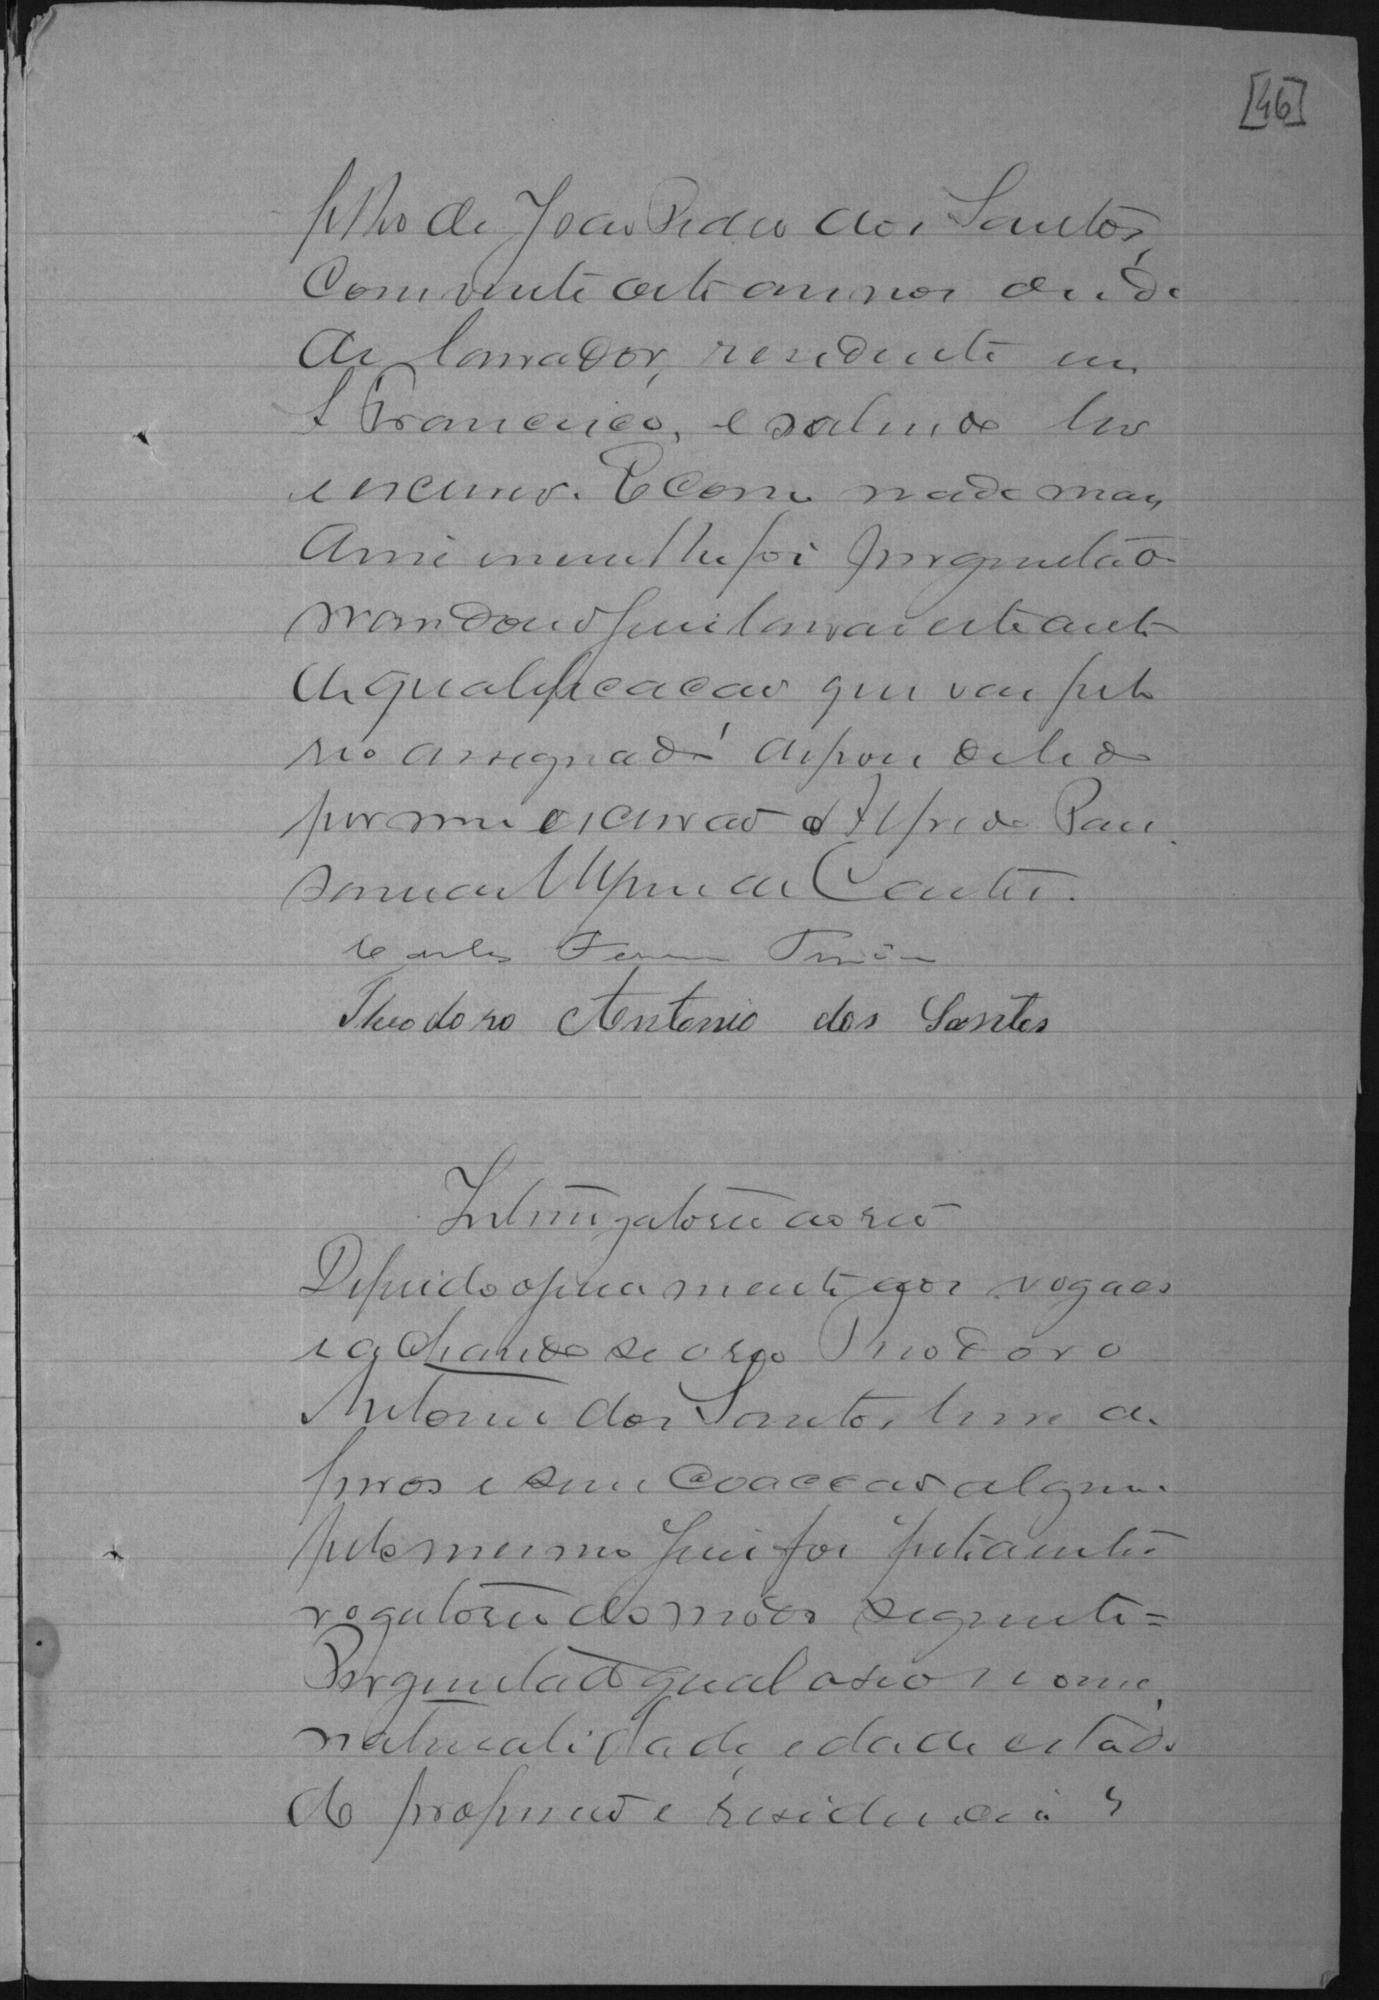 [46]
filho de João Pedro dos Santos,
com vinte oito annos de ida
de lavrador, residente em
S Francisco, e sabendo ler
e escrever. E como nada mais
lhe foi perguntado
mandou o juiz lavrar este auto
de qualificacao que vae pelo
reo assegnado depois de lido
por mim escrivão Alfredo
de Castro.
Carlos
Theodoro Antonio dos Santos
Interrogatorio ao reo
Deferido o juramento aos vogaes
e achando se o reo Theodoro
Antonio dos Santos livre de
ferros e sem coaccao alguma
pelo mesmo juiz foi feito o inter
rogatorio do modo seguinte =
Perguntado qual o seo nome,
naturalidade, edade estado
profissão e residencia?